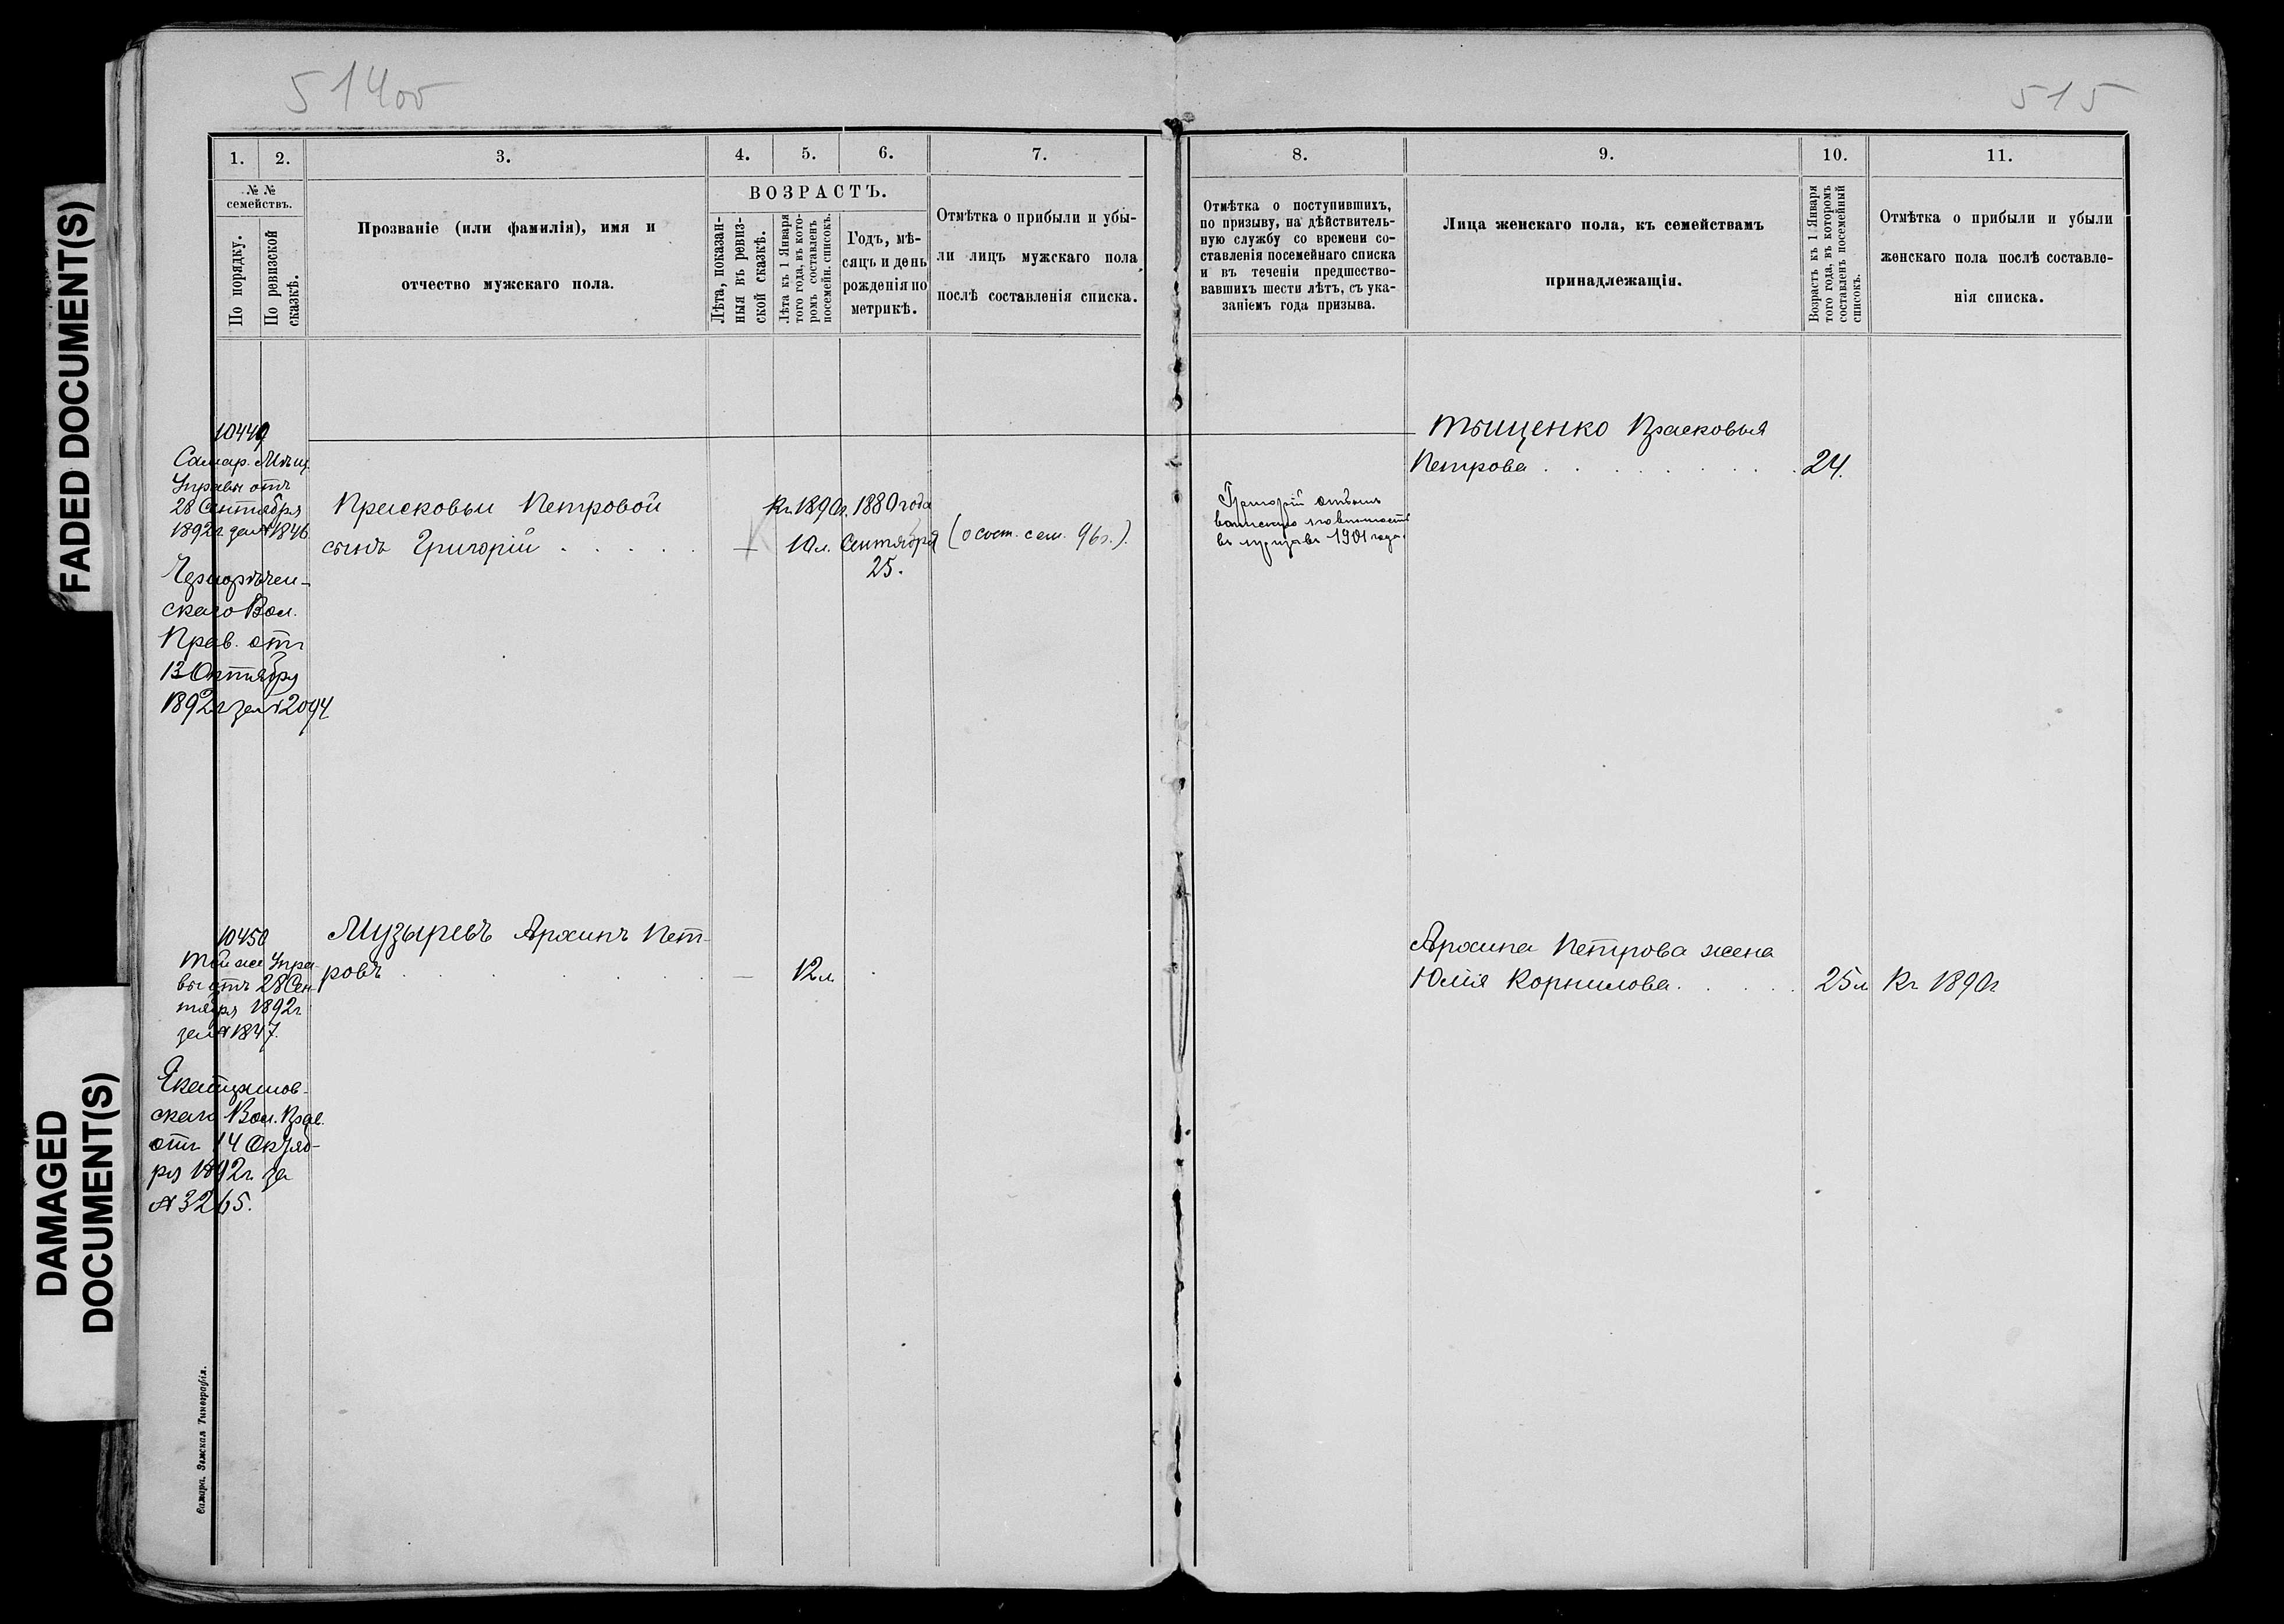 FADED DOCUMENT(S)
DAMAGED
DOCUMENT(S)
514об
515
1.
2.
3.
4.
5.
6.
7.
8.
9.
10.
11.
№ №
семействъ.
По порядку.
По ревизской
сказкѣ.
Прозваніе (или фамилія), имя и
отчество мужскаго пола.
ВОЗРАСТЪ.
Лѣта, показан-
ныя въ ревиз-
ской сказкѣ.
Лѣта къ 1 Января
того года, въ кото-
ромъ составленъ
посемейн. списокъ.
Годъ, мѣ-
сяцъ и день
рожденія по
метрикѣ.
Отмѣтка о прибыли и убы-
ли лицъ мужскаго пола
послѣ составленія списка.
Отмѣтка о поступившихъ,
по призыву, на дѣйствитель-
ную службу со времени со-
ставленія посемейнаго списка
и въ теченіи предшество-
вавшихъ шести лѣтъ, съ ука-
заніемъ года призыва.
Лица женскаго пола, къ семействамъ
принадлежащія.
Возрастъ къ 1 Января
того года, въ которомъ
составленъ посемейный
списокъ.
Отмѣтка о прибыли и убыли
женскаго пола послѣ составле-
нія списка.
10449
Самар. Мѣщ.
Управы отъ
28 Сентября
1892г за №1846
Чернорѣчен-
скаго Вол.
Прав. отъ
13 Октября
1892г за №2094
Прасковьи Петровой
сынъ Григорій
—
Къ 1890г.
10 л.
1880 года
Сентября
25.
(о сост. сем. 96г.).
Григорій отбылъ
воинскую повинность
въ призывъ 1901 года.
Тыщенко Прасковья
Петрова
24.
10450
Той же Упра-
вы отъ 28 Сен-
тября 1892г
за №1847.
Екатериновскаго Вол. Прав.
отъ 14 Октяб-
ря 1892г за
№3265.
Музыревъ Архипъ Пет-
ровъ
—
12 л.
Архипа Петрова жена
Юлія Корнилова
25 л
Къ 1890г
Самара. Земская Типографія.